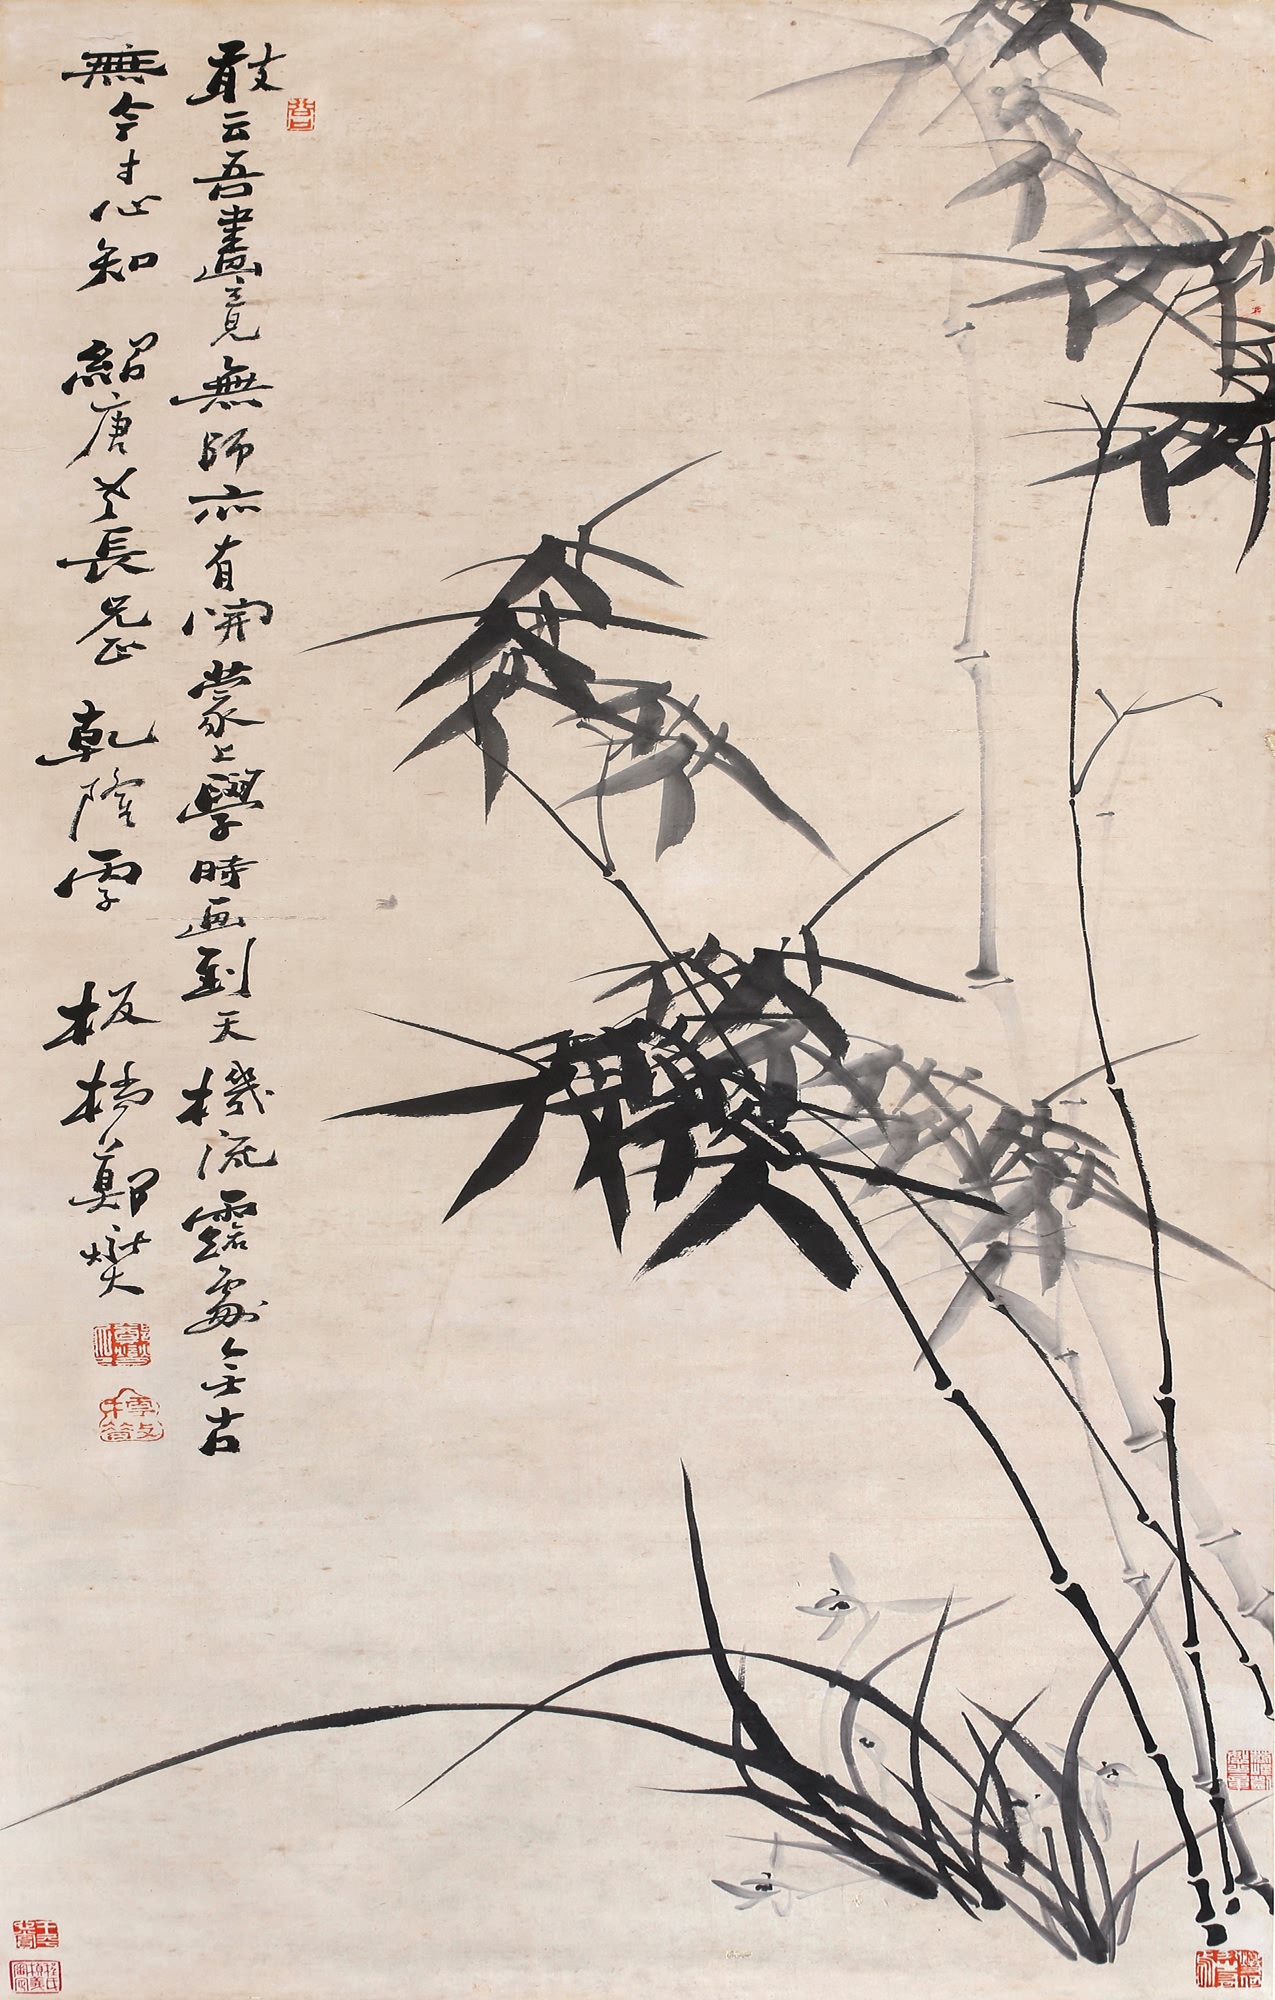 敢云吾畫竟無師亦有開蒙上學時画到天機流露處無古
無今寸心知 紹唐年長兄正 乾隆 板橋鄭燮